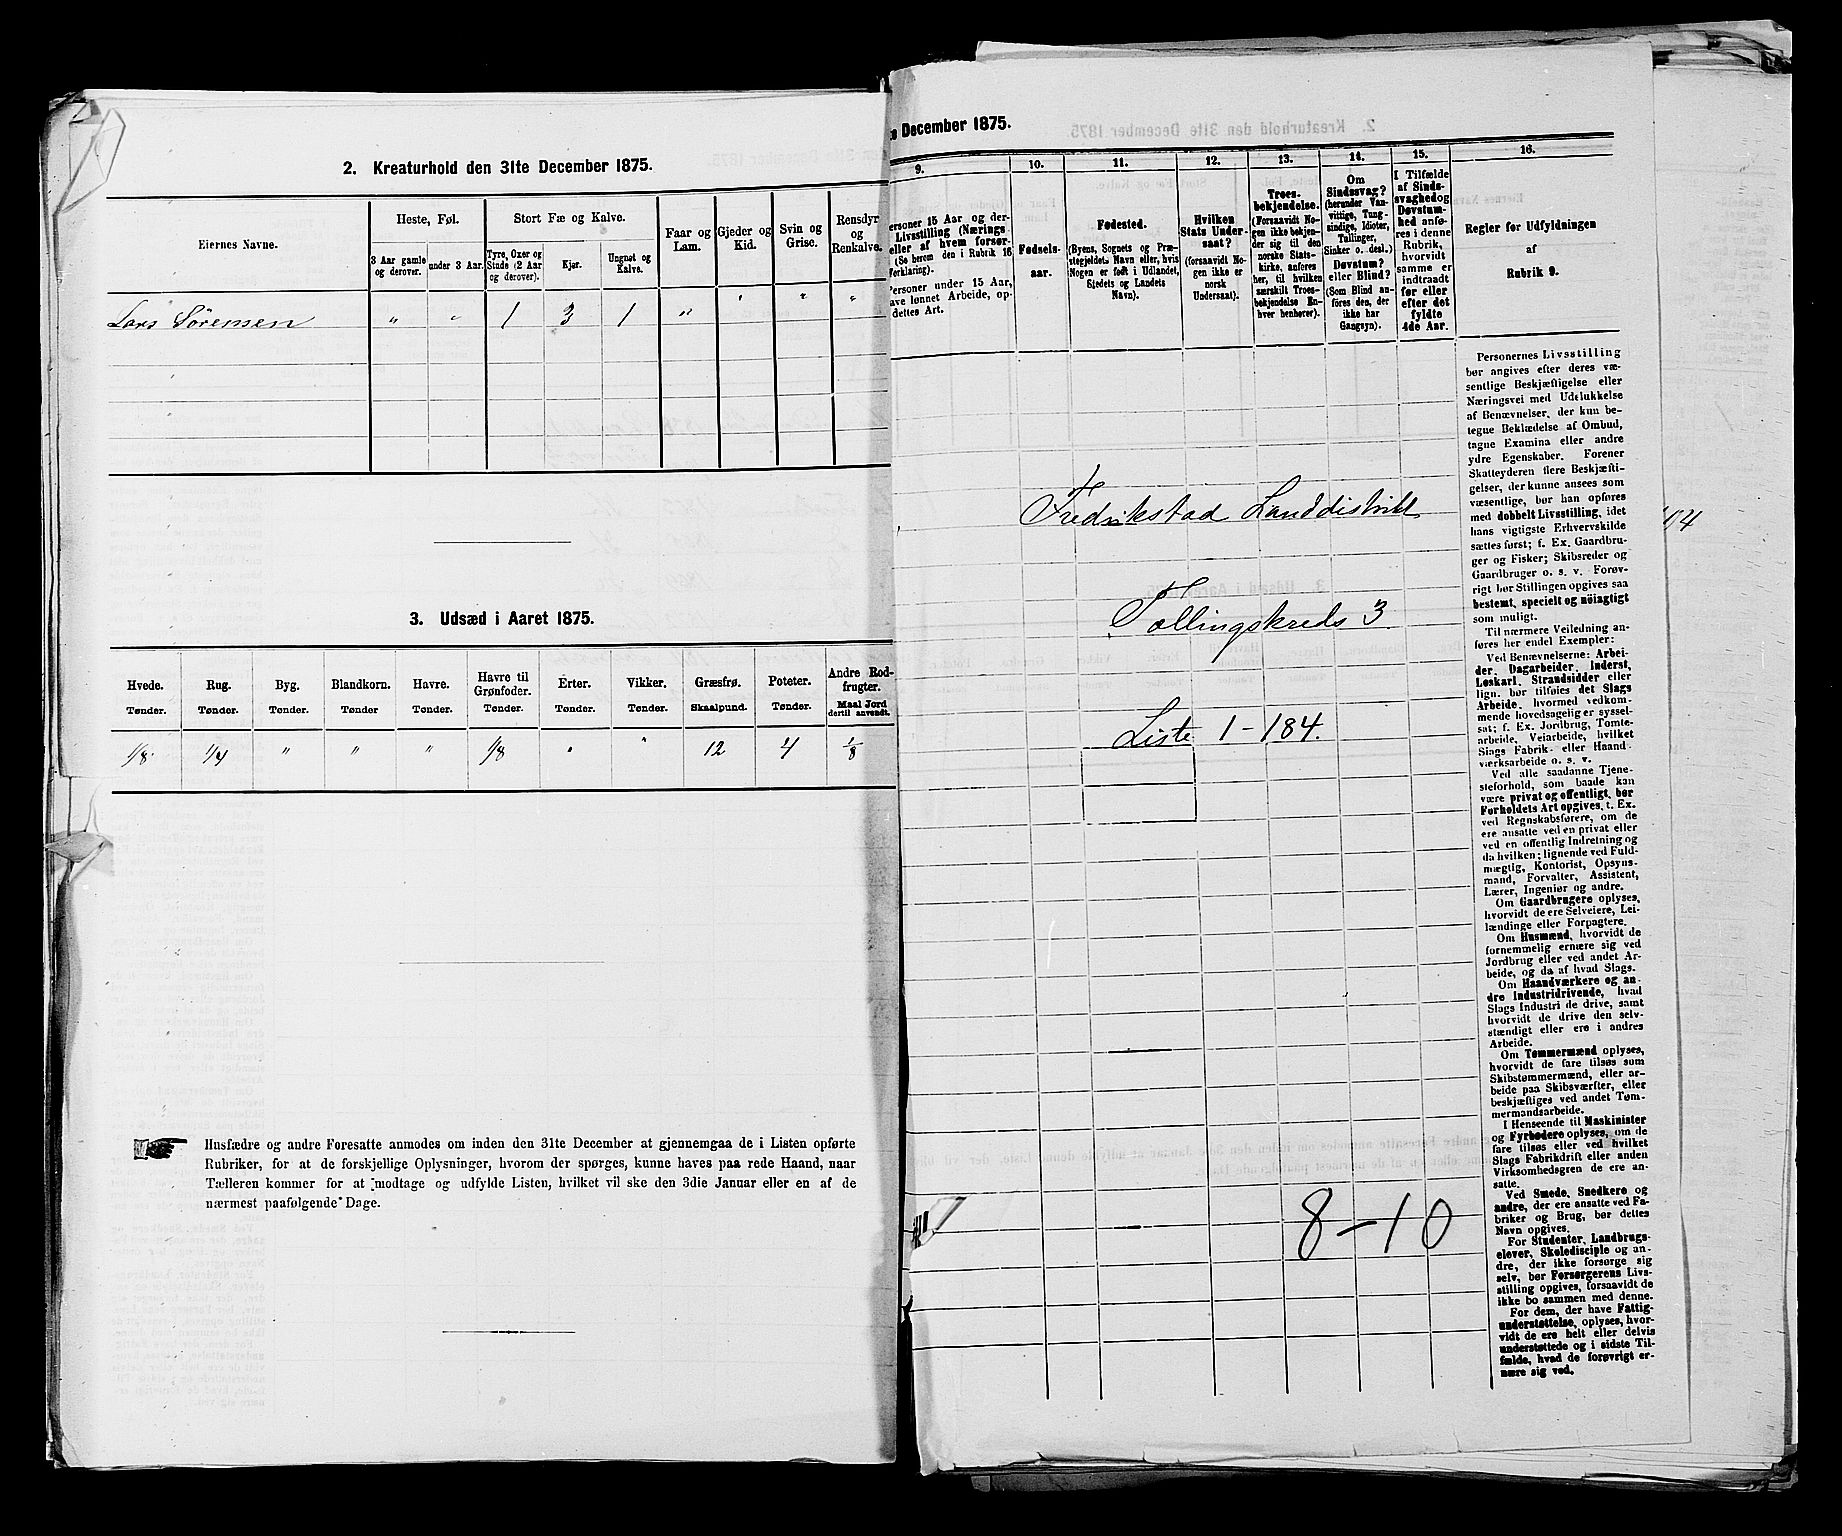 2. Kreaturhold den 31te December 1875.
Eiernes Navne.
Heste, Føl.
Stort Fæ og Kalve.
Faar og
Lam.
Gjeder og
Kid.
Svin og
Grise.
Rensdyr
og
Renkalve.
3 Aar gamle
og derover.
under 3 Aar.
Tyre, Oxer og
Stude (2 Aar
og derover).
Kjør.
Ungnøt og
Kalve.
Lars Sörensen " " 1 3 1 " " " "
3. Udsæd i Aaret 1875.
Hvede. Rug. Byg. Blandkorn. Havre. Havre til
Grønfoder. Erter. Vikker. Græsfrø. Poteter. Andre Rod-
frugter.
Tønder. Tønder. Tønder. Tønder Tønder. Tønder. Tønder. Tønder. Skaalpund. Tønder. Maal Jord
dertil anvendt.
1/8 1/4 " " " 1/8 " " 12 4 1/8
Husfædre og andre Foresatte anmodes om inden den 31te December at gjennemgaa de i Listen opførte
Rubriker, for at de forskjellige Oplysninger, hvorom der spørges, kunne haves paa rede Haand, naar
Tælleren kommer for at modtage og udfylde Listen, hvilket vil ske den 3die Januar eller en af de
nærmest paafølgende Dage.
December 1875.
9.
ersoner 15 Aar og der-
Livsstilling (Nærings
eller af hvem forsør-
(Se herom den i Rubrik 16
Forklaring).
Personer under 15 Aar,
ave lønnet Arbeide, op-
dettes Art.
10.
Fødsels-
aar.
11.
Fødested.
(Byens, Sognets og Præ-
stegjeldets Navn eller, hvis
Nogen er født i Udlandet,
Stedets og Landets
Navn).
12.
Hvilken
Stats Under-
saat?
(forsaavidt No-
gen ikke er
norsk
Undersaat).
13.
Troes-
bekjendelse.
(Forsaavidt No-
gen ikke bekjen-
der sig til den
norske Stats-
kirke, anføres
her, til hvilken
særskilt Troes-
bekjendelse En-
hver henhører).
14.
Om
Sindssvag?
(herunder Van-
vittige, Tung-
sindige, Idioter,
Tullinger,
Sinker o. desl.)
Døvstum?
eller Blind?
(Som Blind an-
føres den, der
ikke har
Gangsyn).
15.
I Tilfælde
af Sinds-
svaghed og
Døvstum-
hed anfø-
res i denne
Rubrik,
hvorvidt
samme er
indtraadt
før eller
efter det
fyldte
4de Aar.
16.
Regler for Udfyldningen
af
Rubrik 9.
Fredrikstad Landdistrikt
Tællingskreds 3
Liste 1-184.
8-10
Personernes Livsstilling
bør angives efter deres væ-
sentlige Beskjæftigelse eller
Næringsvei med Udelukkelse
af Benævnelser, der kun be-
tegne Beklædelse af Ombud,
tagne Examina eller andre
ydre Egenskaber. Forener
Skatteyderen flere Beskjæfti-
gelser, der kunne ansees som
væsentlige, bør han opføres
med dobbelt Livsstilling, idet
hans vigtigste Erhvervskilde
sættes først; f. Ex. Gaardbru-
ger og Fisker; Skibsreder og
Gaardbruger o. s. v. Forøv-
rigt bør Stillingen opgives saa
bestemt, specielt og nöiagtigt
som muligt.
Til nærmere Veiledning an-
føres her endel Exempler:
Ved Benævnelserne: Arbei-
der, Dagarbeider, Inderst,
Løskarl, Strandsidder eller
lign. bør tilføies det Slags
Arbeide, hvormed vedkom-
mende hovedsagelig er syssel-
sat; f. Ex. Jordbrug, Tomte-
arbeide, Veiarbeide, hvilket
Slags Fabrik- eller Haand-
værksarbeide o. s. v.
Ved alle saadanne Tjene-
steforhold, som baade kan
være privat og offentligt, bør
Forholdets Art opgives, t. Ex.
ved Regnskabsførere, om de
ere ansatte ved en privat eller
ved en offentlig Indretning og
da hvilken; lignende ved Fuld-
mægtig, Kontorist, Opsyns-
mand, Forvalter, Assistent,
Lærer, Ingeniør og andre.
Om Gaardbrugere oplyses,
hvorvidt de ere Selveiere, Lei-
lændinge eller Forpagtere.
Om Husmænd, hvorvidt de
fornemmelig ernære sig ved
Jordbrug eller ved andet Ar-
beide, og da af hvad Slags.
Om Haandværkere og an-
dre Industridrivende, hvad
Slags Industri de drive, samt
hvorvidt de drive den selv-
stændigt eller ere i andres
Arbeide.
Om Tømmermænd oplyses,
hvorvidt de fare tilsøs som
Skibstømmermænd, eller ar-
beide paa Skibsværfter, eller
beskjæftiges ved andet Tøm-
mermandsarbeide.
I Henseende til Maskinister
og Fyrbødere oplyses, om de
fare tilsøs eller ved hvilket
Slags Fabrikdrift eller anden
Virksomhedsgren de ere an-
satte.
Ved Smede, Snedkere og
andre, der ere ansatte ved Fa-
briker og Brug, bør dettes
Navn opgives.
For Studenter, Landbrugs-
elever, Skoledisciple og an-
dre, der ikke forsørge sig
selv, bør Forsørgerens Livs-
stilling opgives, forsaavidt de
ikke bo sammen med denne.
For dem, der have Fattig-
understøttelse, oplyses, hvor-
vidt de ere helt eller delvis
understøttede og i sidste Til-
fælde, hvad de forøvrigt er-
nære sig ved.